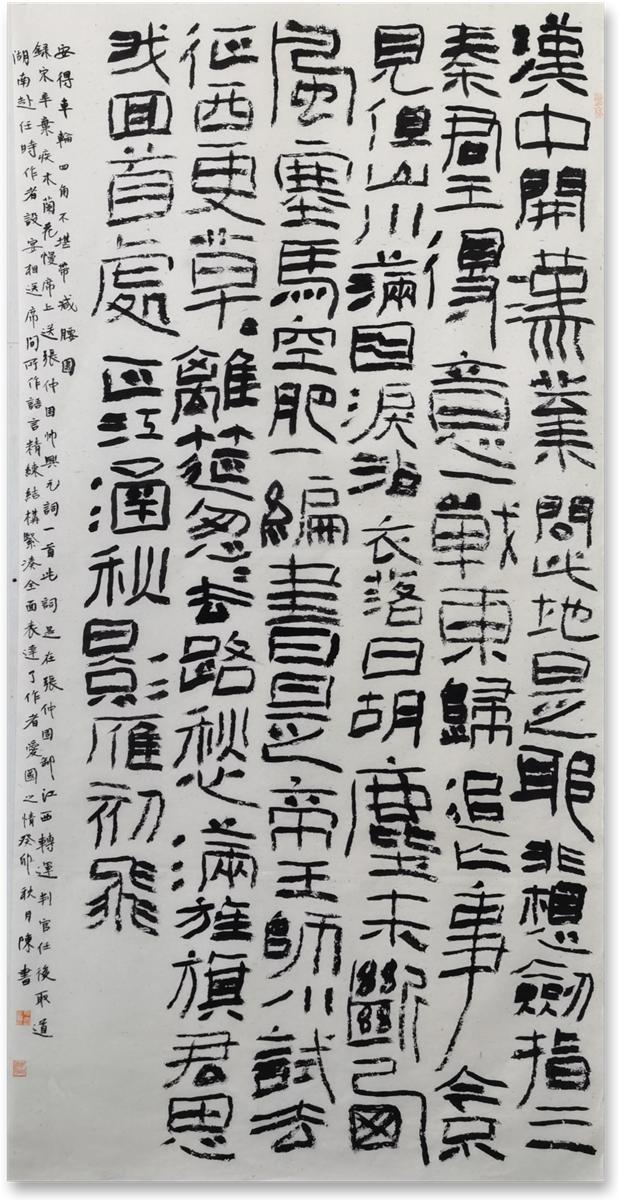 漢中開漢業問此地是耶非想劍指三
秦君王得意一戰東歸追亡事今
見但山川滿目淚沾衣落日胡塵未斷西
風塞馬空肥一編書是帝王師小試去
征西更草〻離筵怱〻去路愁滿旌旗君思
我回首處正江涵秋影雁初飛
安得車輪四角不堪帶減腰圍
錄宋辛棄疾木蘭花慢席上送張仲固帥興元詞一首此詞是在張仲固卸江西轉運判官任後取道
湖南赴任時作者設宴相送席間所作語言精練結構緊湊全面表達了作者愛國之情癸卯秋月陳書